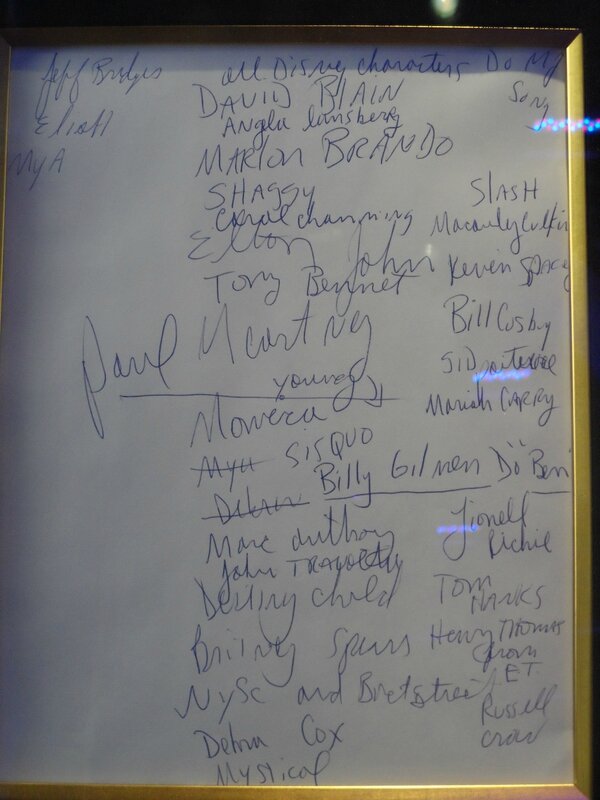 Jeff Bridges
Eliott
MyA
all Disney characters Do My
Song
DAVID BLAIN
Angela lansberry
MARlon BRANDO
SHAGGY
Carol channing
Elton John
Tony Bennet
Paul Mcartney
young
Monica
Mya SISQUO
Billy Gilmen Dö Ben
Marc Anthony
John TRAVOLTA
Destiny Child
Britney Spears
NySc and BackStreet
Debra Cox
Mystical
SlASH
Macauley Culkin
Keven SPACEy
Bill Cosby
SID
Mariah CARRY
Lionell
Richie
Tom
HANKS
Henry THOMAS
from
E.T.
Russell
Crow